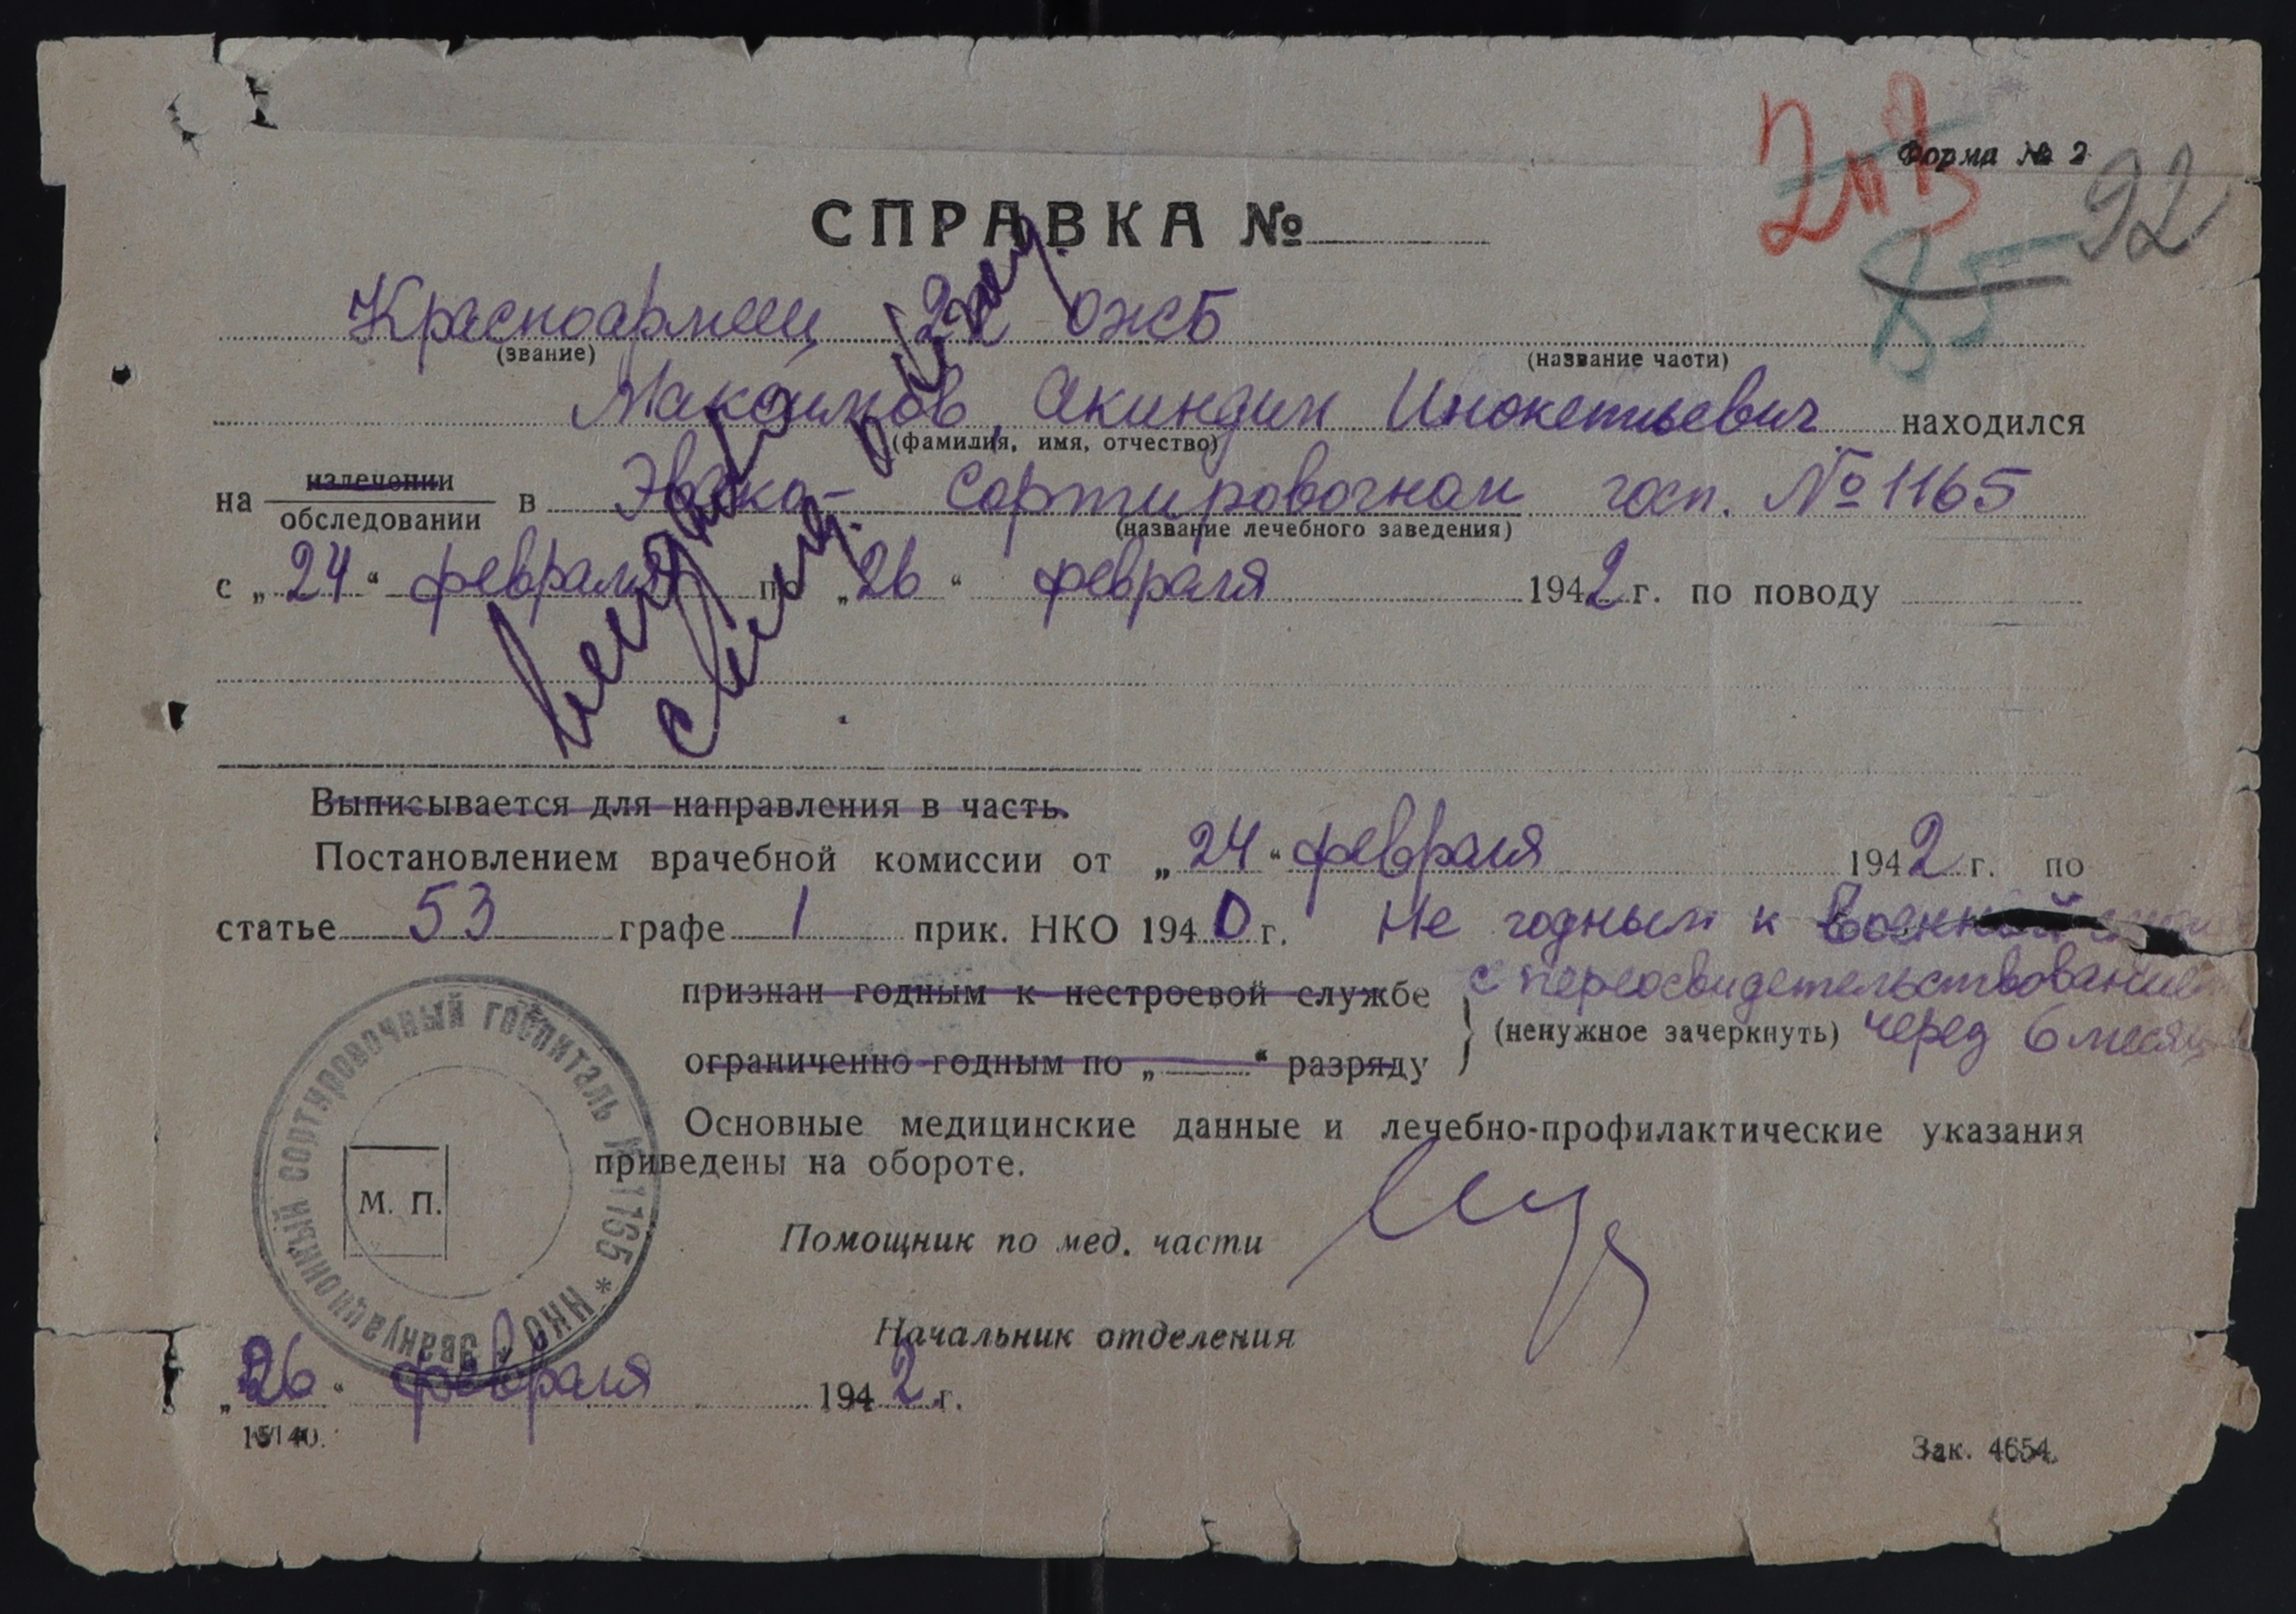 Форма № 2
92
85
СПРАВКА №
Красноармеец 22 ОЖБ
(звание) (название части)
Максимов Акиндин Инокетьевич находился
(фамилия, имя, отчество)
на излечении в Эвако- Сортировочном госп. № 1165
обследовании (название лечебного заведения)
с „24“ февраля по „26“ февраля 1942 г. по поводу
Выписывается для направления в часть.
Постановлением врачебной комиссии от „24“ февраля 1942 г. по
статье 53 графе 1 прик. НКО 1940 г. Не годным к военной
признан годным к нестроевой службе с переосвидетельствование
(ненужное зачеркнуть) через 6 месяц
ограниченно годным по „ “ разряду
Основные медицинские данные и лечебно-профилактические указания
приведены на обороте.
ЭВАКУАЦИОННЫЙ СОРТИРОВОЧНЫЙ ГОСПИТАЛЬ № 1165 * НКО *
М. П.
Помощник по мед. части
Начальник отделения
„26“ февраля 1942 г.
Зак. 4654.